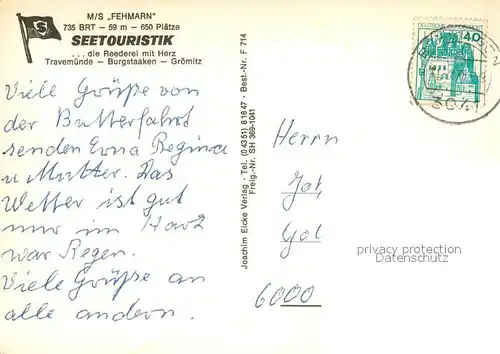 M/S „FEHMARN"
735 BRT – 59 m – 650 Plätze
SEETOURISTIK
. . . die Reederei mit Herz
Travemünde – Burgstaaken – Grömitz
Viele Grüße von
der Butterfahrt
senden Erna Regina
u Mutter. Das
Wetter ist gut
nur im Harz
war Regen.
Viele Grüße an
alle andern.
Joachim Eicke Verlag · Tel. (0 43 51) 8 18 47 · Best.-Nr. F 714
Freig.-Nr. SH 369-1041
40
304
Herrn
6000
privacy protection
Datenschutz